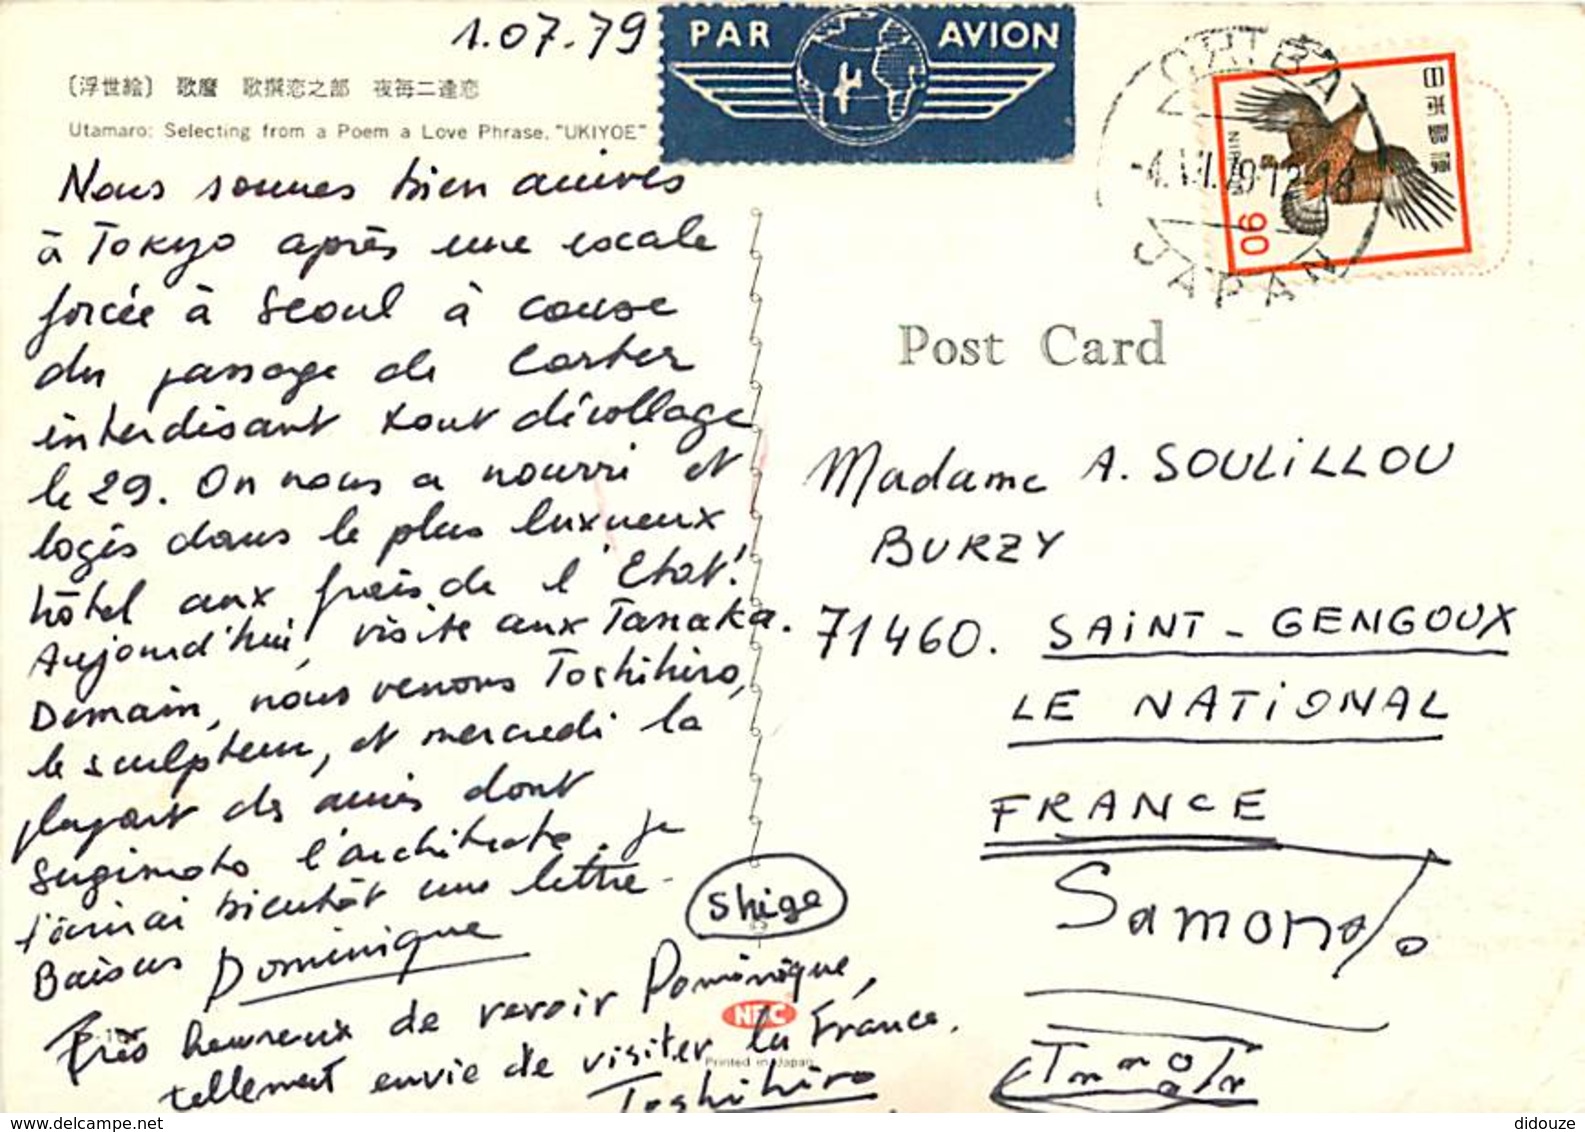 1.07.79
PAR AVION
〔浮世絵〕 歌麿 歌撰恋之部 夜毎二逢恋
Utamaro: Selecting from a Poem a Love Phrase. "UKIYOE"
Nous sommes bien arrivés
à Tokyo après une escale
forcée à Seoul à cause
du passage de Carter
interdisant tout décollage
le 29. On nous a nourri et
logés dans le plus luxueux
hôtel aux frais de l'Etat!
Aujourd'hui, visite aux Tanaka.
Demain, nous verrons Toshihiro,
le sculpteur, et mercredi la
plupart des amis dont
Sugimoto l'architecte. Je
t'écrirai bientôt une lettre.
Baisers Dominique
Très heureux de revoir Dominique,
tellement envie de visiter la France.
Toshihiro
Shige
NBC
Printed in Japan
CHIBA
-4.VII.79 12-18
JAPAN
日本郵便
NIPPON
90
Post Card
Madame A. SOULiLLOU
BURZY
71460. SAiNT-GENGOUX
LE NATiONAL
FRANCE